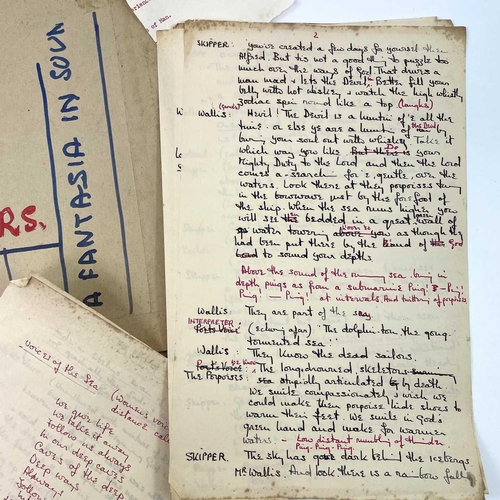 of Man.
A FANTASIA IN SOUN
RS.
2
SKIPPER: You've created a few days for yourself then
Alfred. But tis not a good thing to puzzle too
much over the ways of God. That drives a
man mad & lets the Devil in. Better fill your
belly with hot whiskey & watch the high whistly
Zodiac spin round like a top (laughs)
Wallis: (gentle) Hevil! The Devil is a huntin of 'e all the
time. or else ye are a huntin of the Devil by
buring your soul out with whiskey. Take it
which way you like. But there is your
Mighty Duty to the Lord and then the Lord
comes a-search for 'e, gentle, over the
waters. Look there at they porpoises
in the bowwave just by the forefoot of
the ship. When the sea runs higher you
will see bedded in a great wall of
water towering above you as though they
had been put there by the hand of God
to sound your depths
Above the sound of the running sea bring in
depth pings as from a submarine Ping! B-Ping!
Ping! - Ping! at intervals. And of porpoises
Wallis: They are part of the sea,
INTERPRETER Poets Voice: (echoing afar) The dolphin-torn the gong-
tormented sea!
Wallis: They know the dead sailors.
Poets Voice: the long drowned skeletons
The Porpoises: sea stupidly articulated by death
We smile compassionately & wish we
could make them porpoise hide shoes to
warm their feet. We smile in God's
green hand and make for warmer
waters. - Low distant rumbling of thunder
Ping-Ping-Ping
SKIPPER. The sky has gone dark behind the icebergs
Mr Wallis. And look there is a rainbow full
Voices of the Sea (Women's voices
distance
We give life
we take it away
follow us always
In our deep caves
Caves of the deep
Deep ways
Always